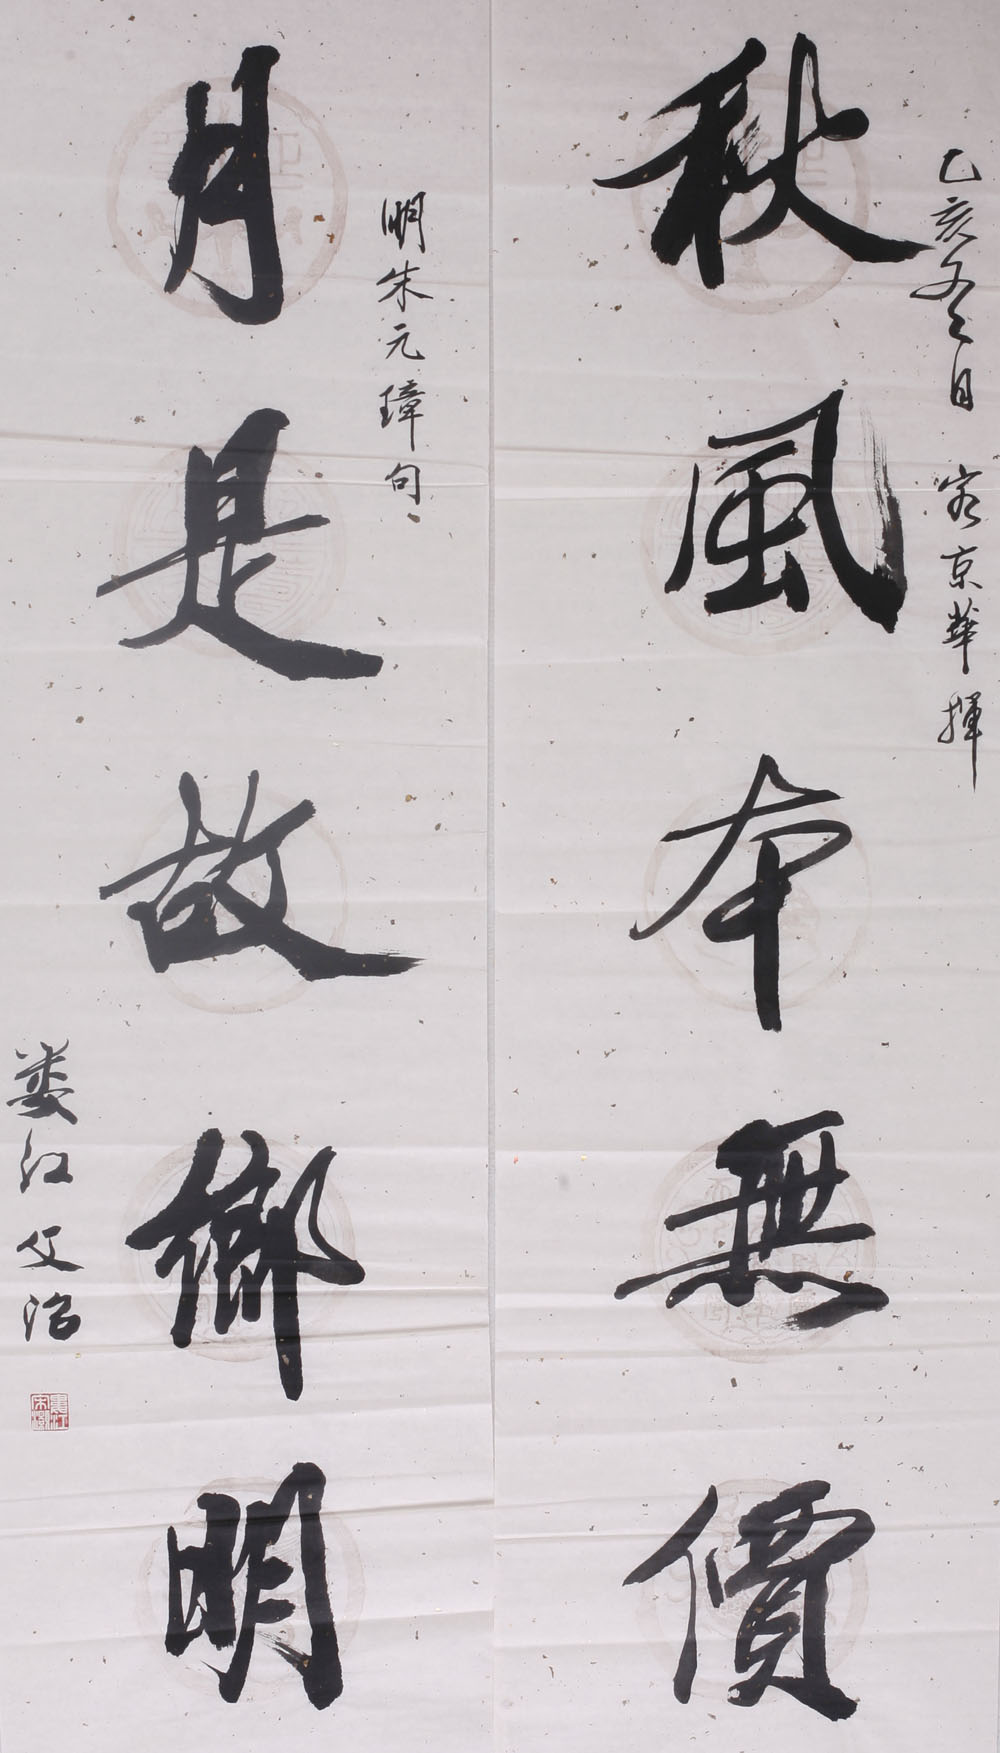 乙亥冬日 客京華揮
秋風本無價
明朱元璋句
月是故鄉明
婁江文治